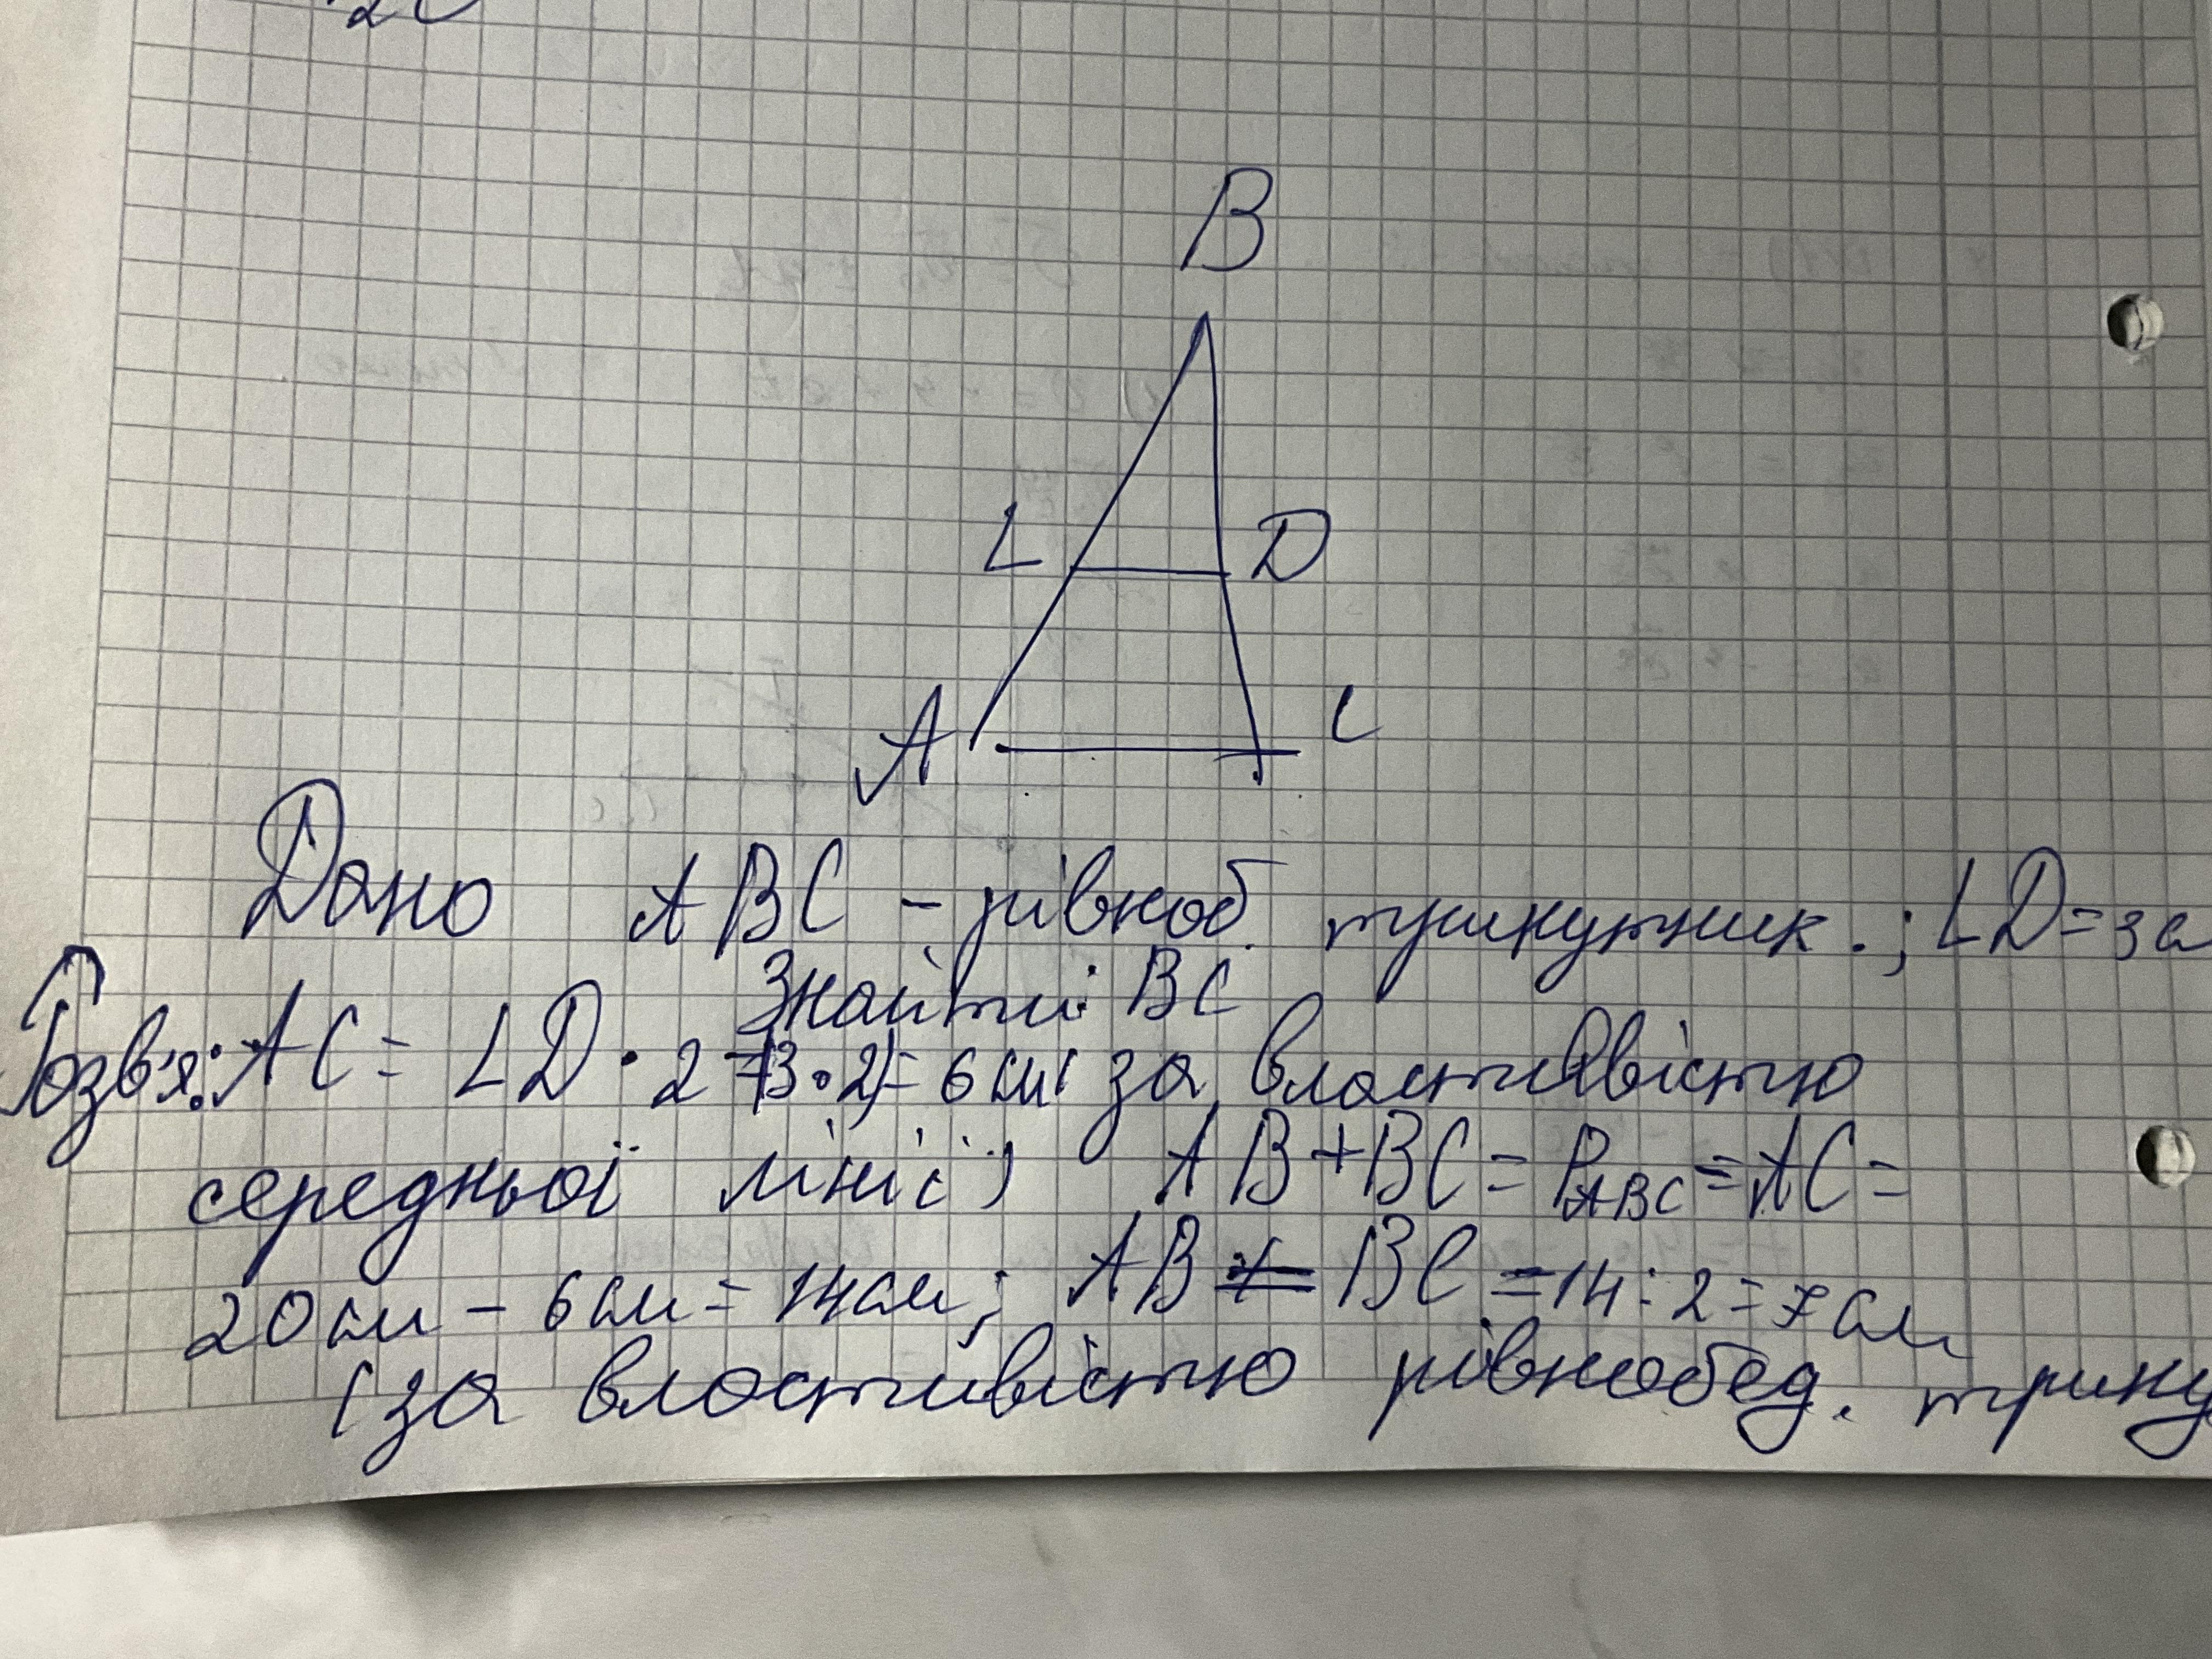 2C
B
L D
A C
Дано ABC - рівноб. трикутник.; LD=3с
Знайти: BC
Розв'я: AC = LD · 2 =(3·2)= 6см( за властивістю
середньої лінії) AB+BC= PABC = AC =
20см - 6см = 14см; AB = BC = 14:2=7см
(за властивістю рівнобед. трику